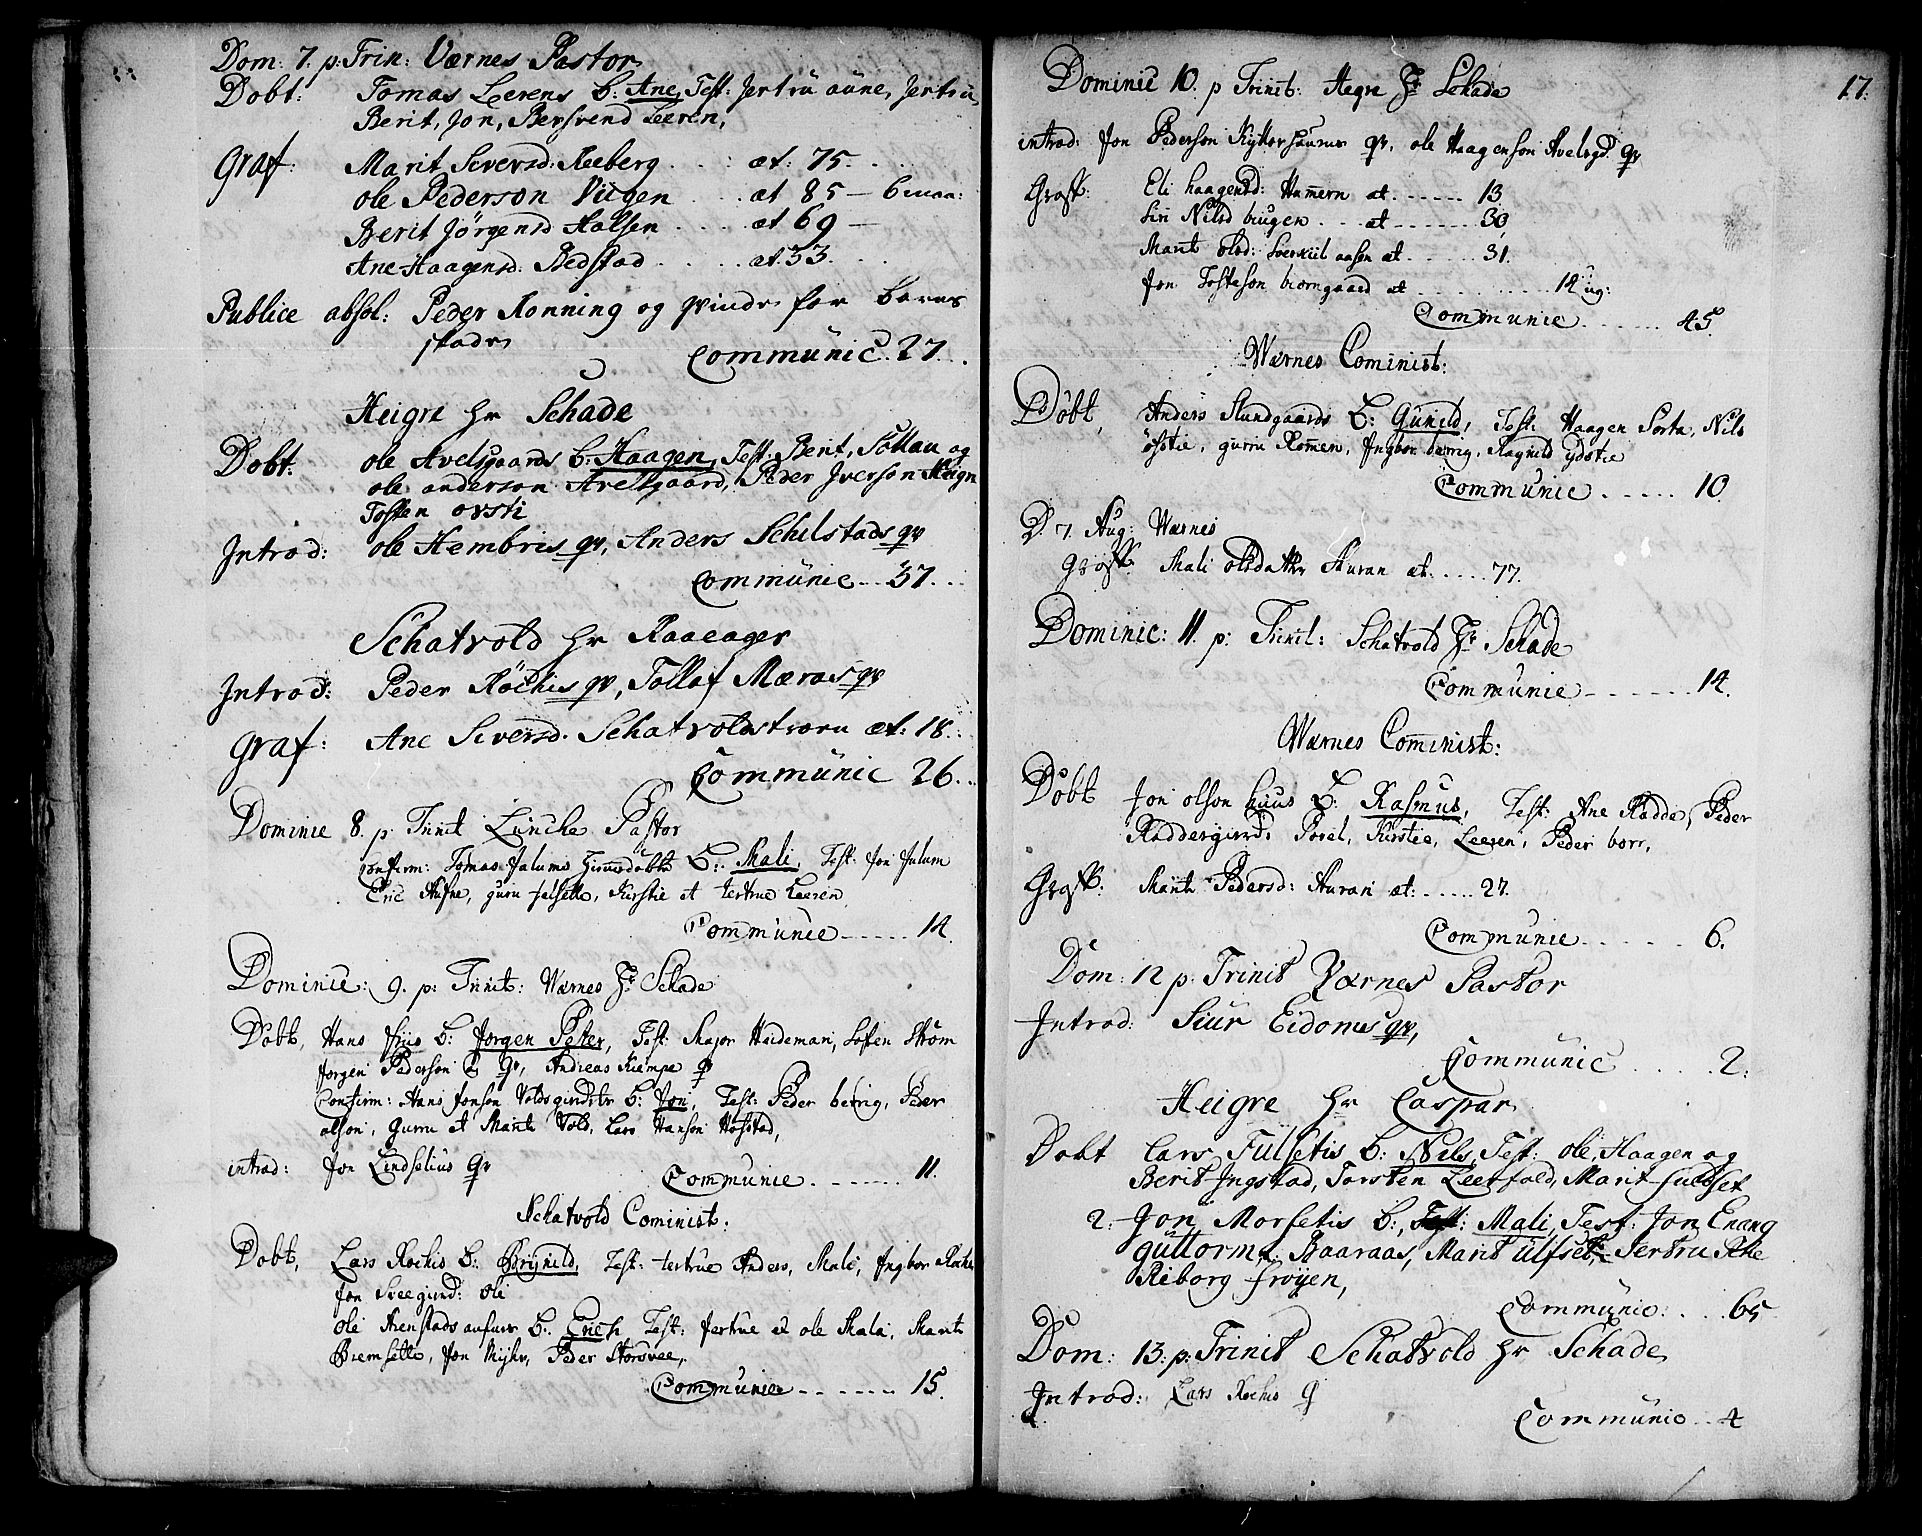 Dom: 7. p: Trin: Værnes Pastor
Døbt: Tomas Leerens b: Ane, Test: Jertrü aüne, Jertrü
Berit, Jon, Bersvend Leeren,
Graf: Marit Siversd: Reeberg . . . : æt: 75. . .
ole Pederson Viigen . . . æt 85 — 6 maa:
Berit Jörgensd Halsen . . . . æt 69 —
Ane Haagensd. Bedstad . . . . . æt 33. . .
Publice absol: Peder Rönning og qvinde for barns
skade
Commünic. 27. . .
Heigre Hr Schade
Døbt: ole Avelsgaards b: Haagen, Test: Berit, Sollau og
ole anderson Avelsgaard, Peder Jverson Heigre
Tosten ovsti
Introd: ole Hembris qv, Anders Schilstads qv
Commünic . . 37. . .
Schatvold Hr Raaeager
Introd: Peder Röchis qv, Tollaf Mæraas qv
Graf: Ane Siversd. Schatvoldstrøen æt: 18. .
Commünic 26. .
Dominic 8. p. Trinit Lünche Pastor
confirm: Tomas Julums hiemedøbte B: Mali, Test: Jon Julum
Eric Aufne, guru , Kirstie et Jertrue Leeren
Commünic - - - - - 14.
Dominic: 9. p: Trinit: Wærnes Hr Schade
Døbt, Hans b: Jørgen Peter, Test: Major Heideman, Sofien Strøm
Jørgen Pederson & qv, Andreas Kiempe q
Confirm: Hans Jonson Voldsgierdets b: Jon, Test: Peder , Peder
olson, Gurru et Marit Vold, Lars Hanson Hofstad,
introd: Jon Lindselius qv
Commünie . - - - - - 11.
Schatvold Cominist:
Døbt, Lars Rochis b: Brynild, Test: Jertrue Anders, Mali, Ingbor Rochis
Jon : ole
Ole b: Erich, Test: Jertrue et ole Mala, Marit
, Jon Myhr, Peder Storvee,
Commünie - - - - - - - 15.
17.
Dominic 10. p Trinit: Hegre Hr Schade
introd: Jon Pederson qv, ole Haagenson Avelsgd: qv
Grafk: Eli haagensd: Hamern æt . . - - - - 13
Siri Nilsd biugen - - - æt - - - - - - - 30,
Marit olsd: aasen æt - . - - - - 31.
Jon Tosteson biørngaard æt - - - - - - - - - - - - 14 ug:
Commünie . - - - - - 45.
Wærnes Cominist:
Døbt, Anders Slundgaards b: Gunild, Test: Haagen Sorta, Nils
östie, gurru Römen, Ingbor , Ragnild ydstie
Commünie . - - - - - 10.
D. 7. Aug: Wærnes
Grafk: Mali olsdatter Auran æt . . . . . . 77.
Dominic: 11. p: Trinit: Schatvold Hr Schade
Commünie - - - - - - - 14.
Wærnes Cominist:
Døbt Jon olson huus b: Rasmus, Test: Ane Radde, Peder
, Porel, Kirstie, Leeren, Peder borr,
Grafk: Marit Pedersd: Auran æt: . - - - - - 27.
Commünie - - - - - - 6.
Dom: 12 p: Trinit Værnes Pastor
Introd: Siur Eidoms qv,
Commünic . . . . . 2.
Heigre Hr Caspar
Døbt Lars Fulsetis b: Nils, Test: ole, Haagen og
Berit Jngstad, Torsten Leerfald, Marit fuldset
2: Jon Morsetis b: Mali, Test: Jon Enang
güttorm Baaraas, Marit ülfset, Jertru
Reborg frøyen,
Commünic: . . . 65
Dom: 13: p: Trinit Schatvold Hr Schade
Introd: Lars Rochis q
Commünic . . 4